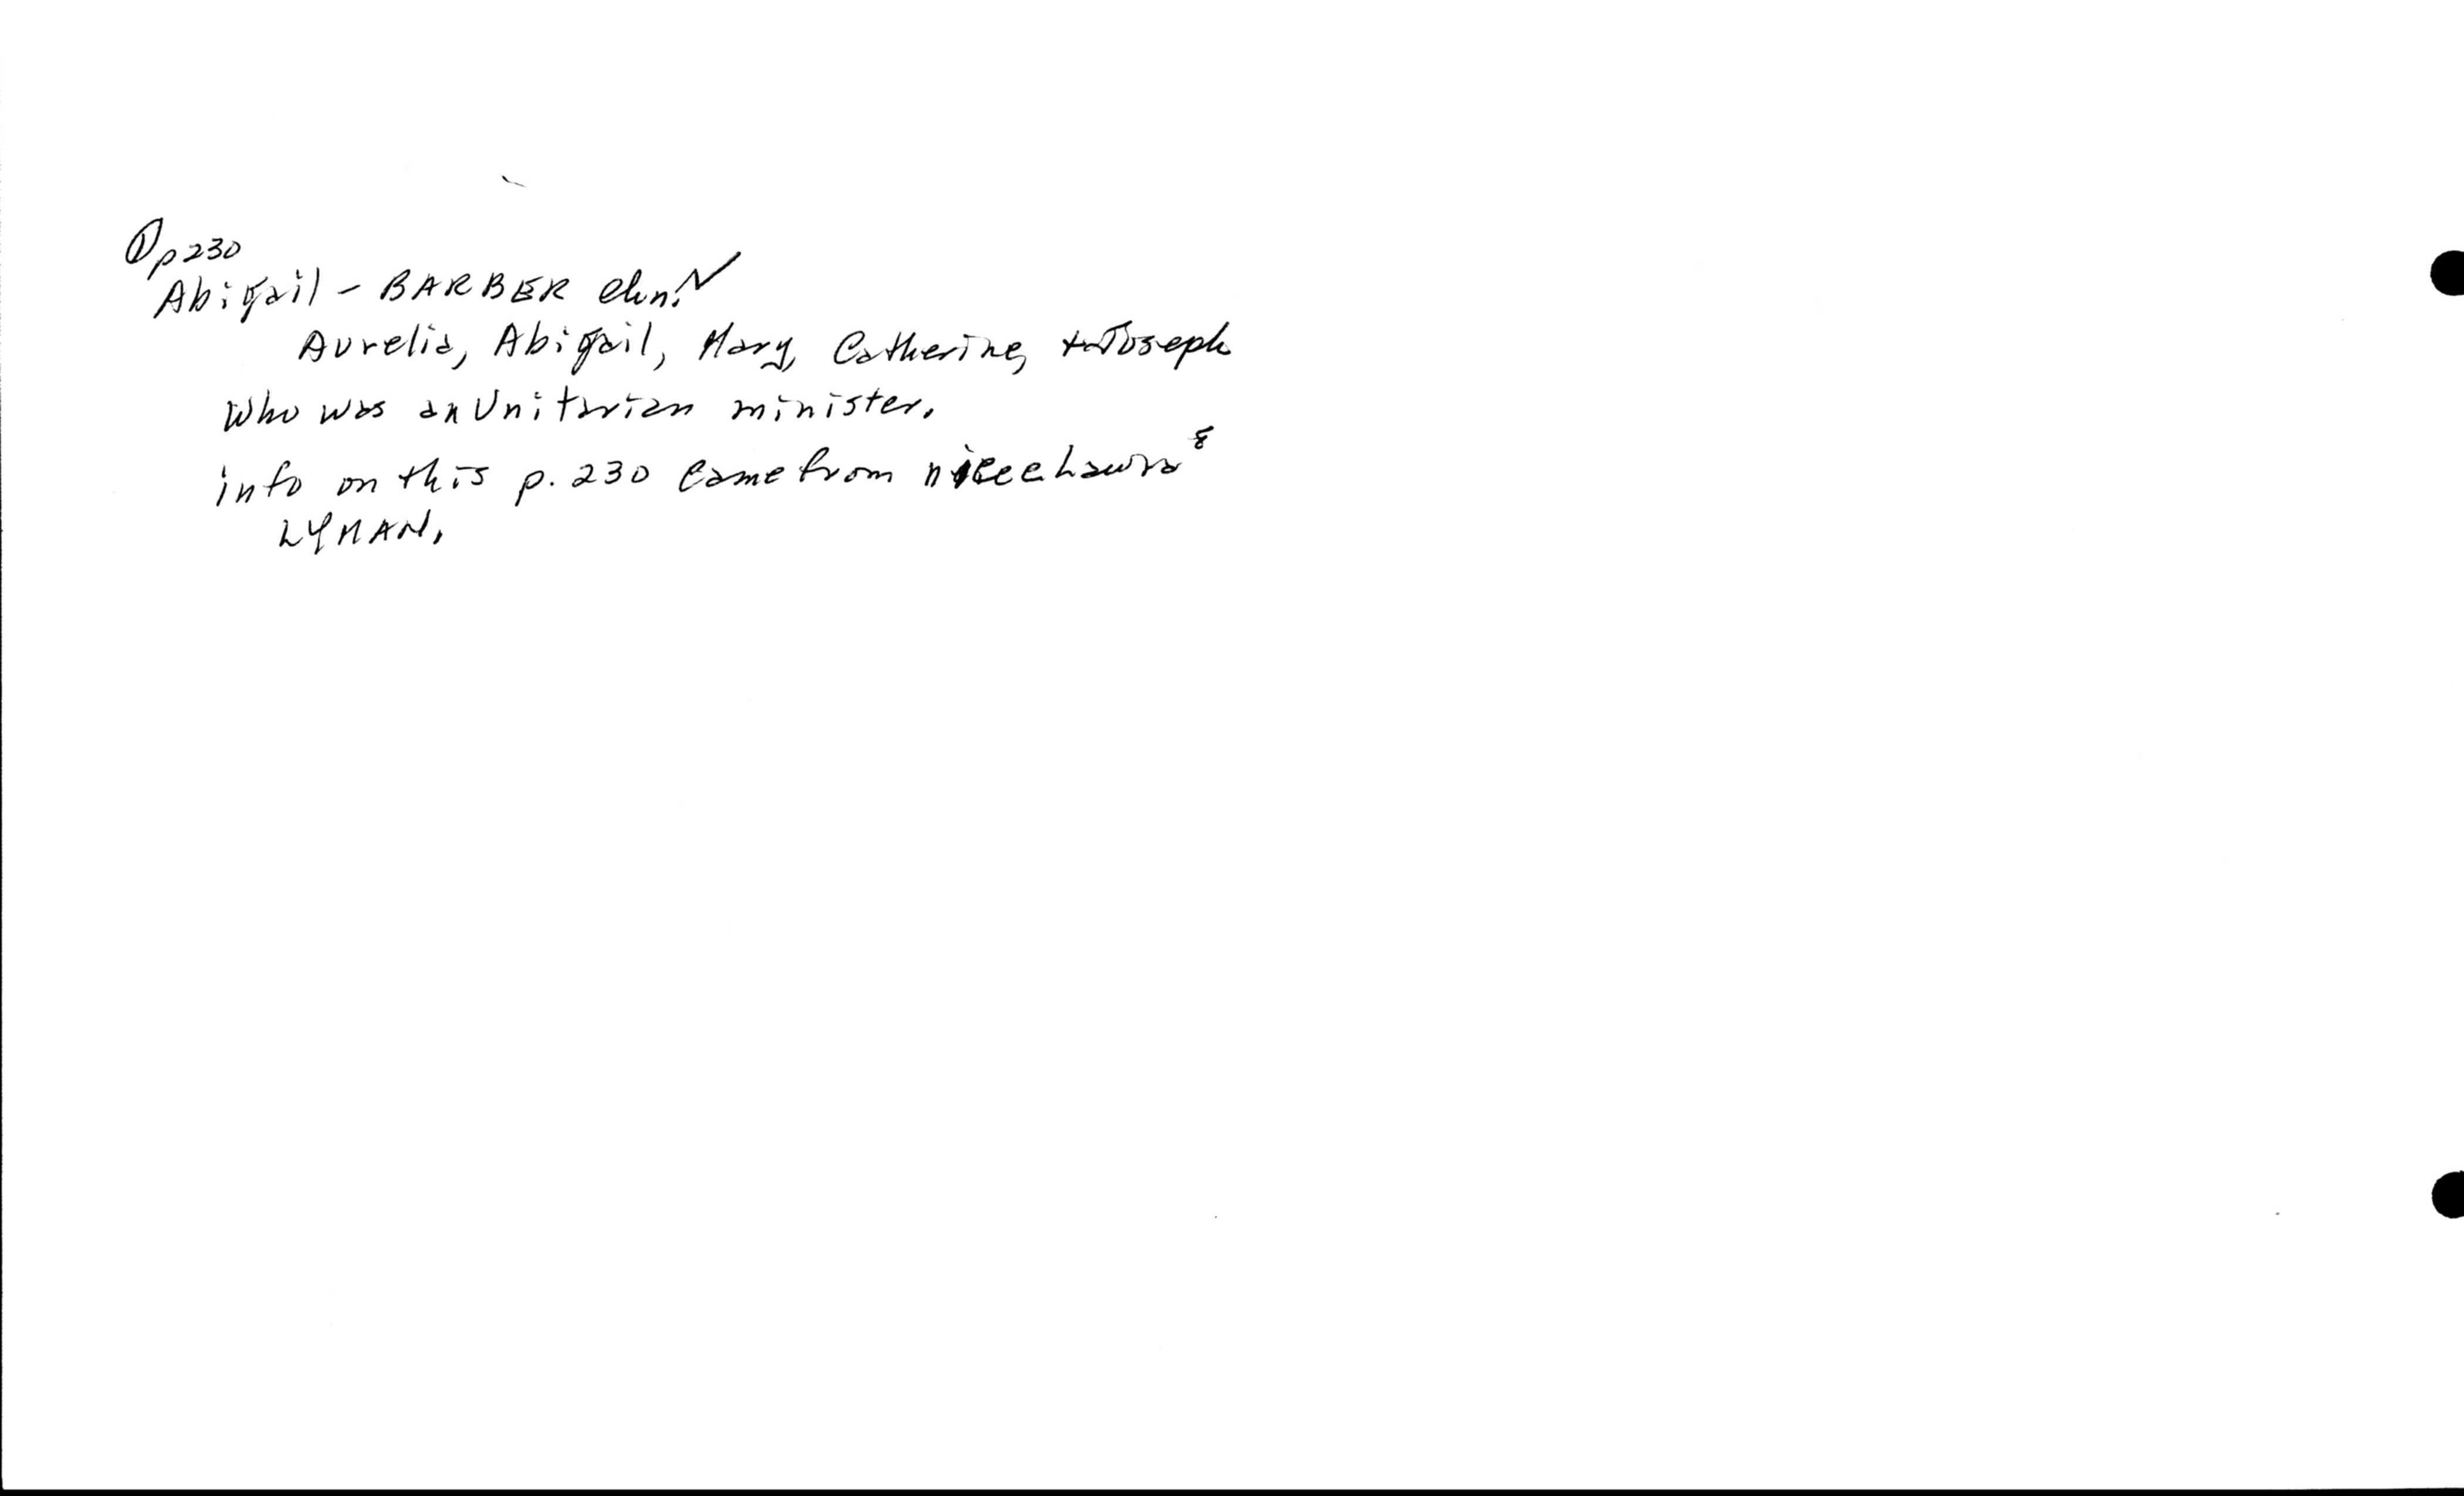 ① p230
Abigail - BARBER chn. ✓
Aurelia, Abigail, Mary, Catherine, + Joseph
Who was an Unitarian minister.
info on this p. 230 came from niece Laura⁸
LYMAN.